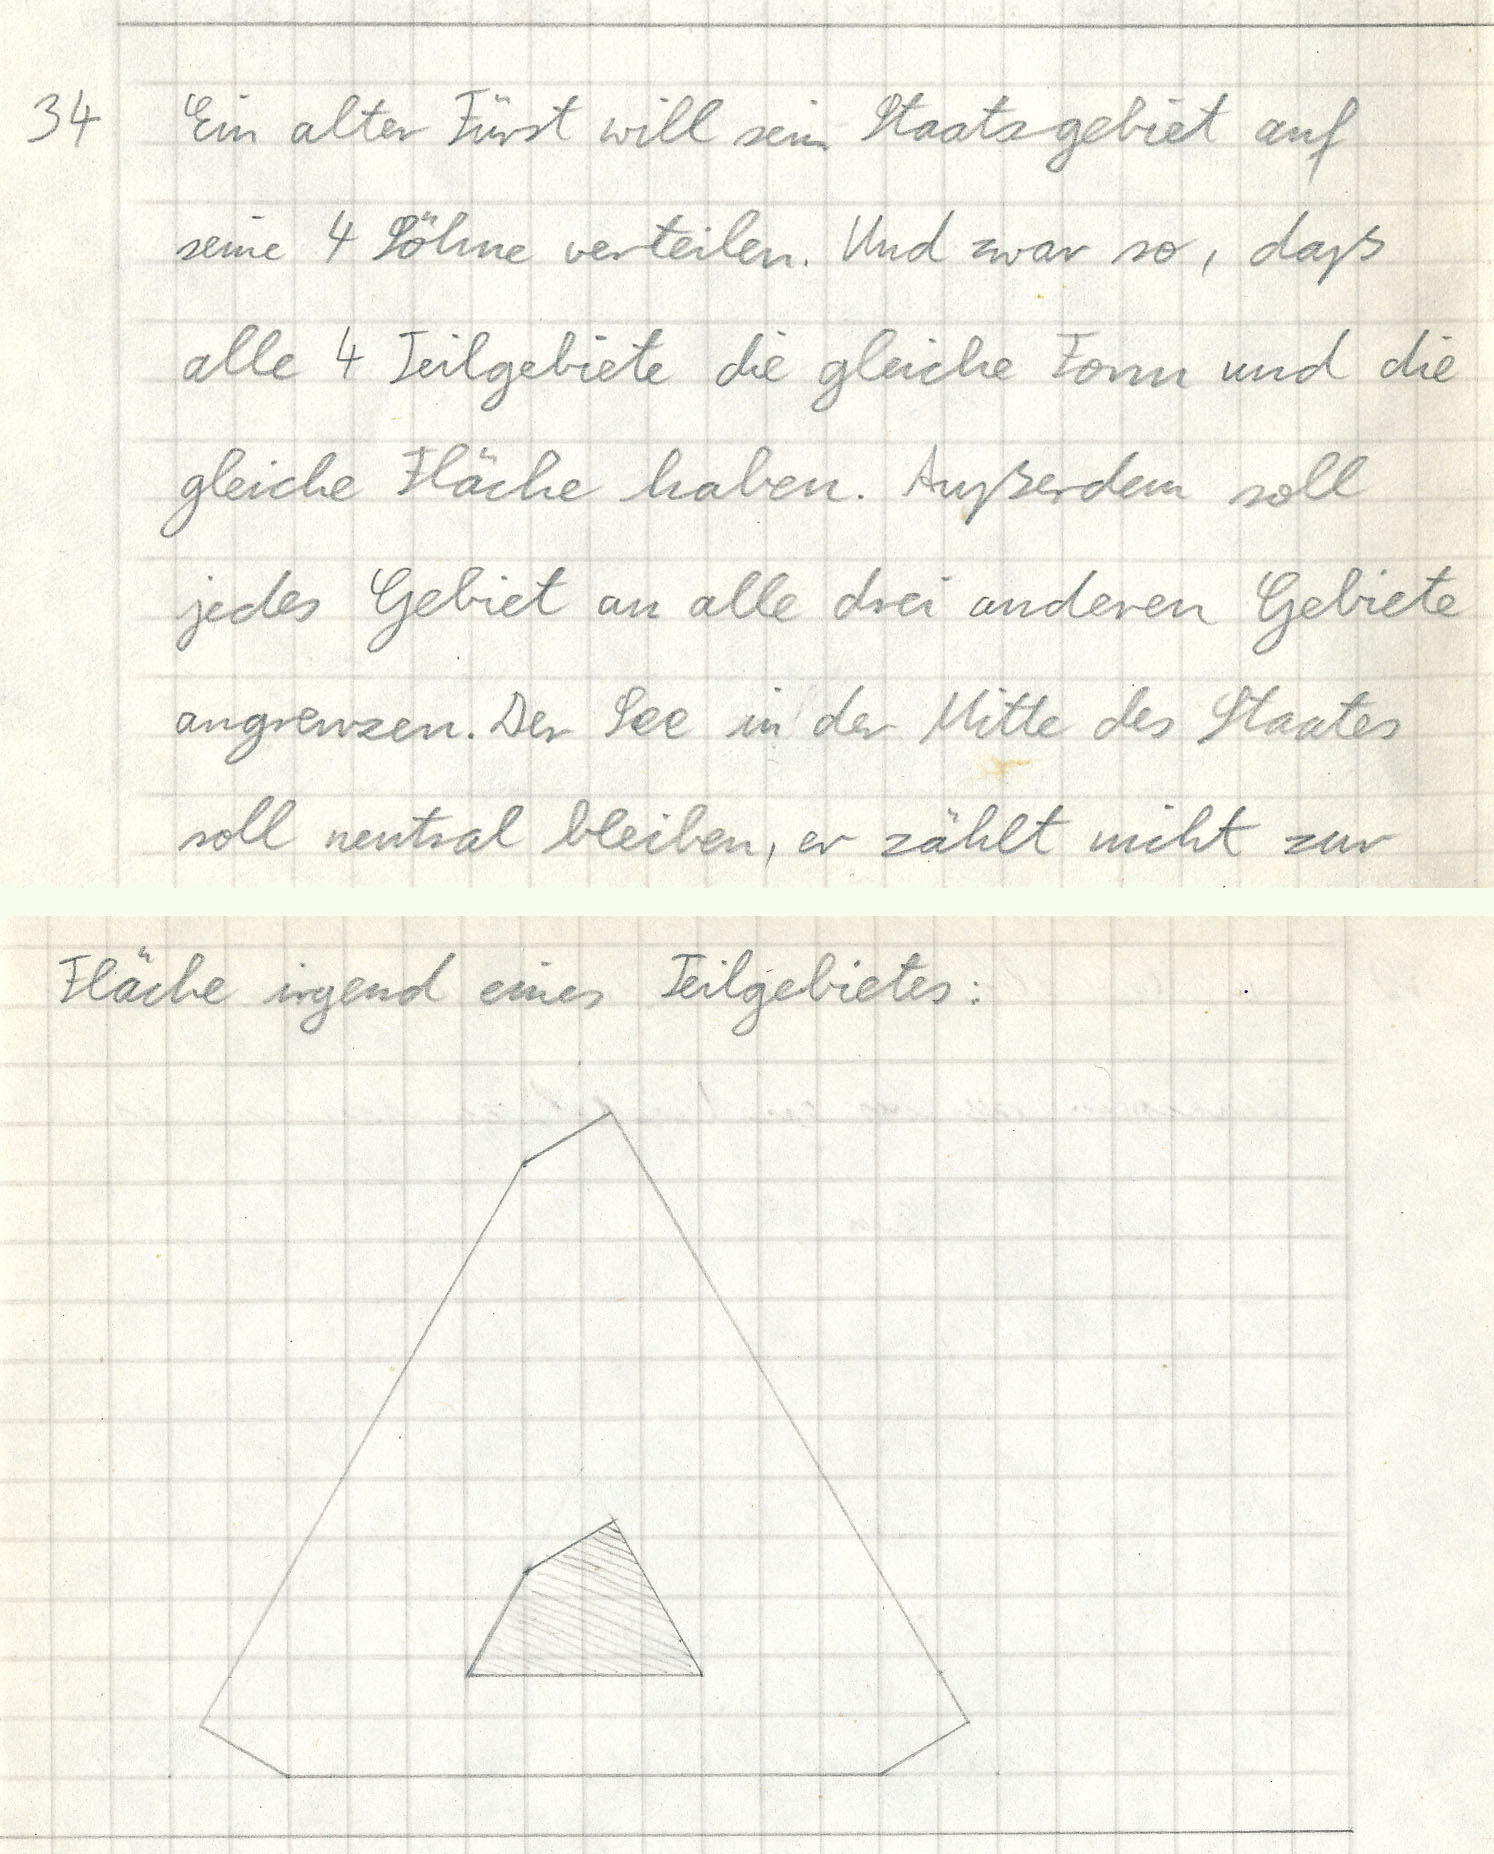 34 Ein alter Fürst will sein Staatsgebiet auf
seine 4 Söhne verteilen. Und zwar so, daß
alle 4 Teilgebiete die gleiche Form und die
gleiche Fläche haben. Außerdem soll
jedes Gebiet an alle drei anderen Gebiete
angrenzen. Der See in der Mitte des Staates
soll neutral bleiben, er zählt nicht zur
Fläche irgend eines Teilgebietes: